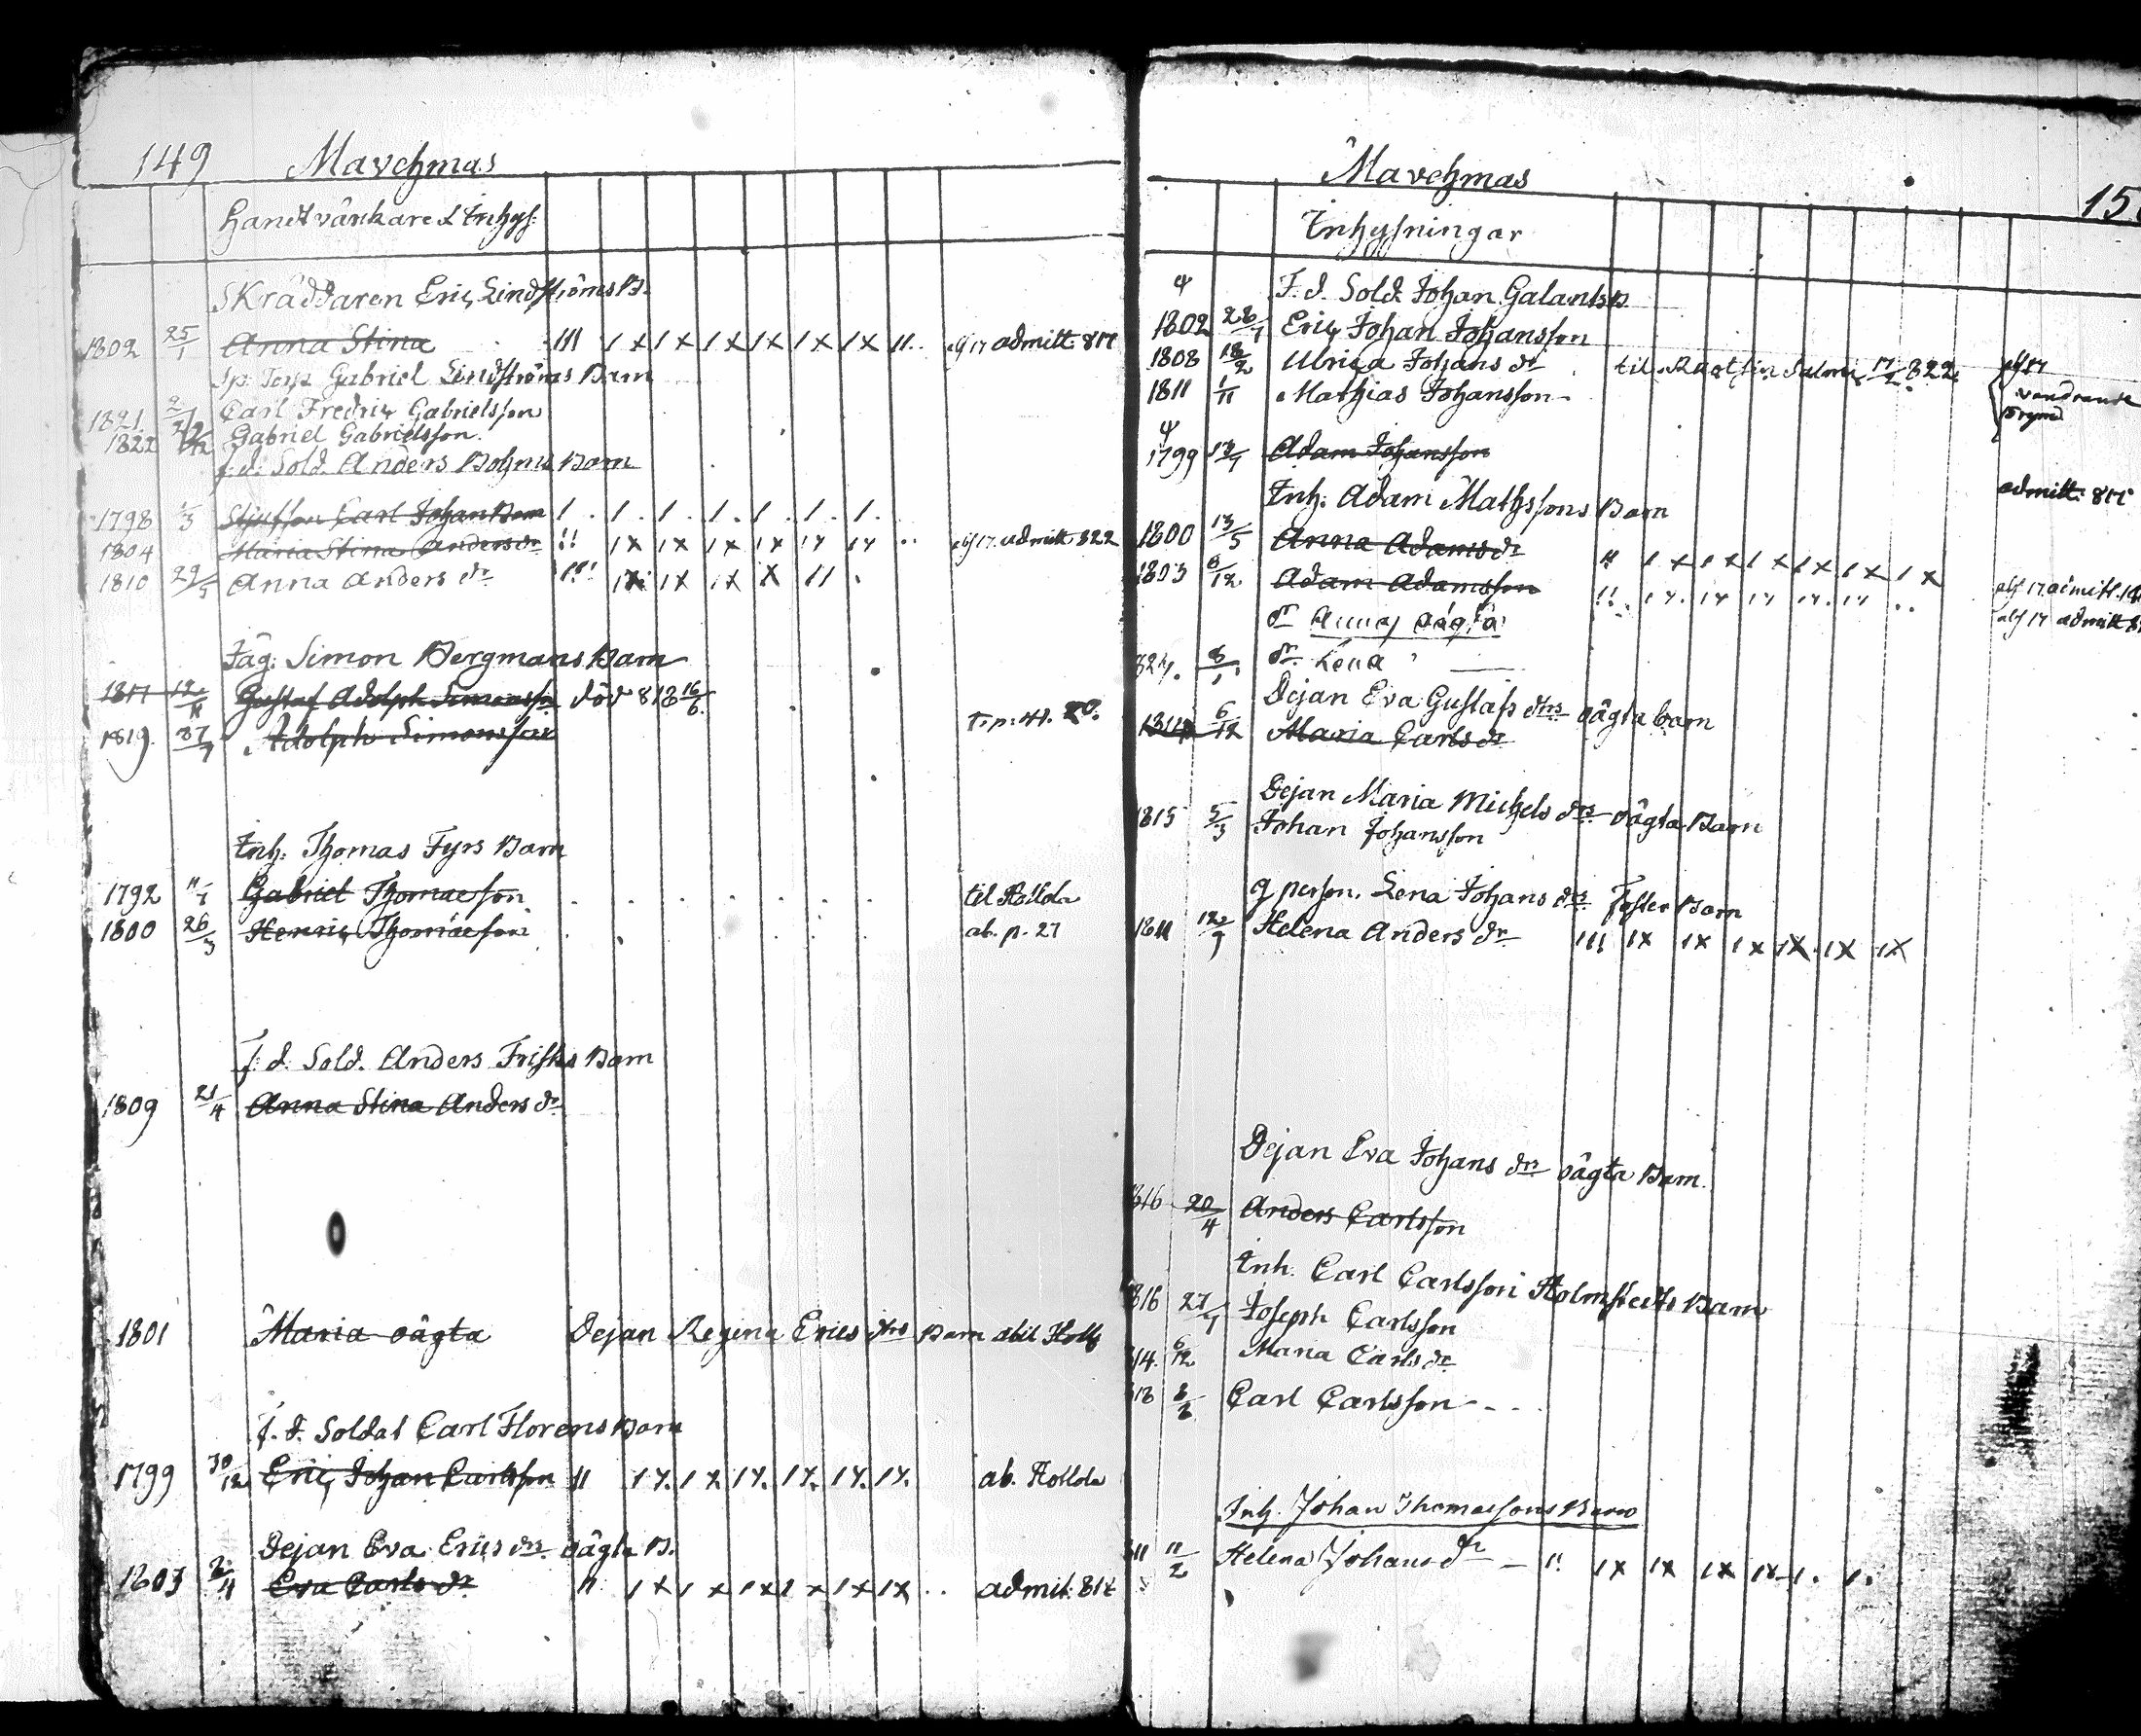 149 Mavehmas
Handtvärkare & Inhys:
Skräddaren Eric Lindströms B.
1802 25/1 Anna Stina III I X I X I X I X I X I X II.. admitt. 817
Sp: Torp Gabriel Lindströms Barn
1821. Carl Fredric Gabrielsson
1822 Gabriel Gabrielsson.
f: d: Sold. Anders Bohms Barn
1798 1/3 Carl Johan Barn I . I . I . I . I . I . I .
1804 Maria Stina Anders dr !! IX IX IX IX IX IX .. admitt. 822
1810 29/5 Anna Anders dr IX IX IX X II .
Jäg: Simon Bergmans Barn
1817 12/11 Gustaf Adolph Simonss. död 818 16/6
1819. 27/7 Adolph Simonsson T. p: 41. 20.
Inh: Thomas Fyrs Barn
1792 11/1 Gabriel Thomæson til Hollola
1800 26/3 Henric Thomæson ab. p. 27
f: d: Sold. Anders Frisks Barn
1809 21/4 Anna Stina Anders dr
1801 Maria oägta Dejan Regina Erics drs Barn abit Holl
f. d. Soldat Carl Florens Barn
1799 30/12 Eric Johan Carlsson II IX. IX IX. IX. IX. IX. ab. Hollola
Dejan Eva Erics drs oägta B.
1803 2/4 Eva Carls dr II I X I X I X I X I X IX .. admit. 818
Mavehmas 15
Inhysningar
F. d. Sold. Johan Galants B
1802 28/1 Eric Johan Johansson
1808 18/2 Ulrica Johans dr til 17/2 822
1811 1/11 Mathias Johansson
1799 13/7 Adam Johansson
admitt: 817
Inh: Adam Mathssons Barn
1800 13/5 Anna Adams dr II I X I X I X I X I X I X
1803 6/12 Adam Adamsson !! IX. IX IX IX. IX .. 17 admitt
dr Annas oägta
dr Lena
Dejan Eva Gustafs drs oägta barn
6/12 Maria Carls dr
Dejan Maria Michels drs oägta Barn
1815 5/3 Johan Johansson
q person. Lena Johans drs Foster Barn
1811 12/9 Helena Anders dr III IX IX IX IX IX IX
Dejan Eva Johans drs oägta Barn.
816 20/4 Anders Carlsson
Inh. Carl Carlsson Holmstedts Barn
816 Joseph Carlsson
14. 6/12 Maria Carls dr
18 Carl Carlsson
Inh. Johan Thomassons Barn
11 11/2 Helena Johans dr — II. IX IX IX IX I. I.